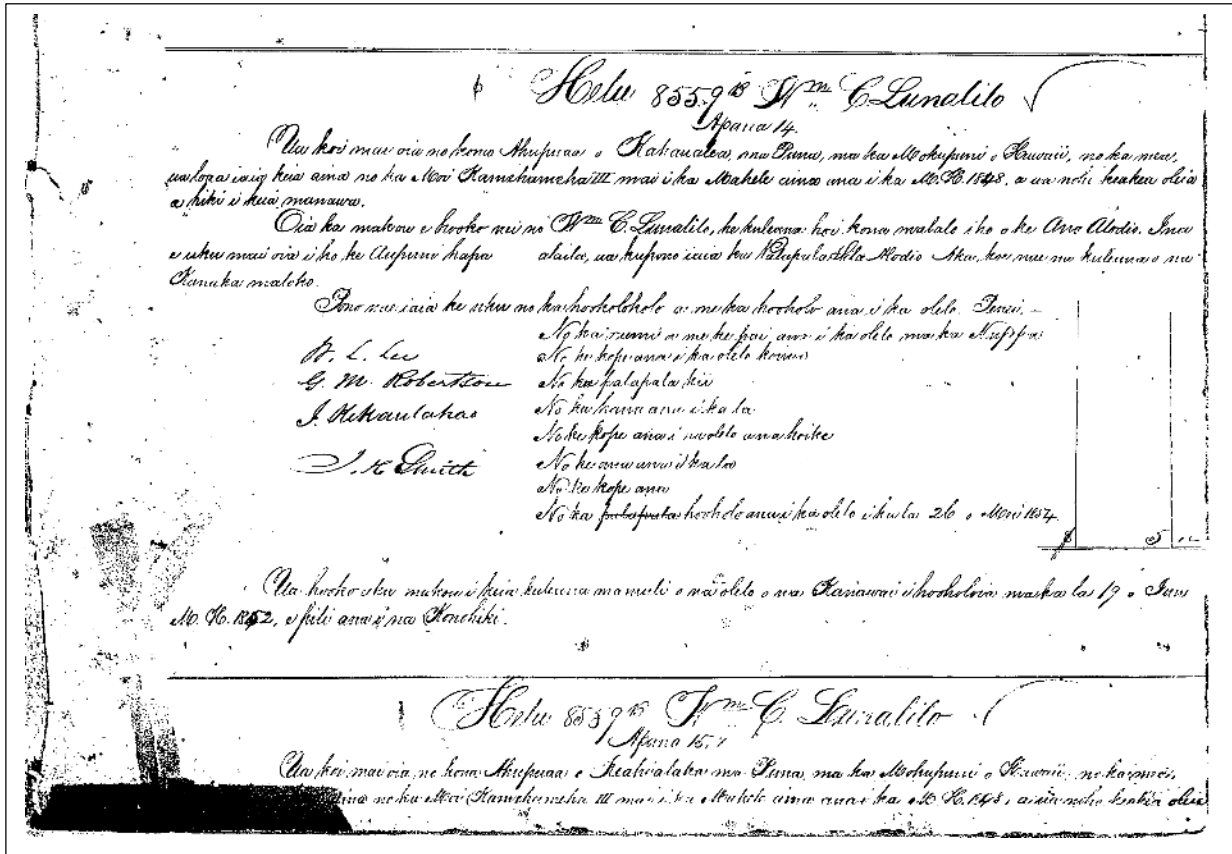 Helu 8559 B Wm C Lunalilo
Apana 14.
Ua koi mai oia no kona Ahupuaa o Kahaualea, ma Puna, ma ka Mokupuni o Hawaii, no ka mea,
ua loaa iaia keia aina no ka Moi Kamehameha III mai i ka Mahele aina ana i ka M.H. 1848, a ua noho keakea oleia
a hiki i keia manawa.
Oia ka makou e hooko nei no Wm C. Lunalilo, he kuleana hoi kona malalo iho o ke Ano Alodio. Ina
e uku mai oia i ho ke Aupuni hapa alaila, ua kupono iaia ke Palapala Sila Alodio Aka, koe nae na kuleana o na
Kanaka maloko.
Pono nae iaia ke uku no ka hookolokolo a me ka hooholo ana i ka olelo. Penei. –
No ka rumi a me ke pai ana i ka olelo ma ka Nupepa
W. L. Lee No ke kope ana i ka olelo
G. M. Robertson No ka palapala kii
J. Kekaulahao No ka kana ana i ka la
No ke kope ana i na olelo ana hoike
J. K Smith No ke ana ana i ka
No ke kope ana
No ka palapala hooholo ana i ka olelo i ka la 26 o Mei 1854.
$ 5
Ua hooko aku makou i keia kuleana mamuli o na olelo o na Kanawai i hooholoia ma ka la 19 o Iune
M.H. 1852, e pili ana i na Konohiki.
Helu 8559 B Wm C. Lunalilo
Apana 15.
Ua koi mai oia no kona Ahupuaa o Keahialaka ma Puna, ma ka Mokupuni o Hawaii, no ka mea,
aina no ka Moi Kamehameha III mai i ka Mahele aina ana i ka M.H. 1848, a ua noho keakea oleia